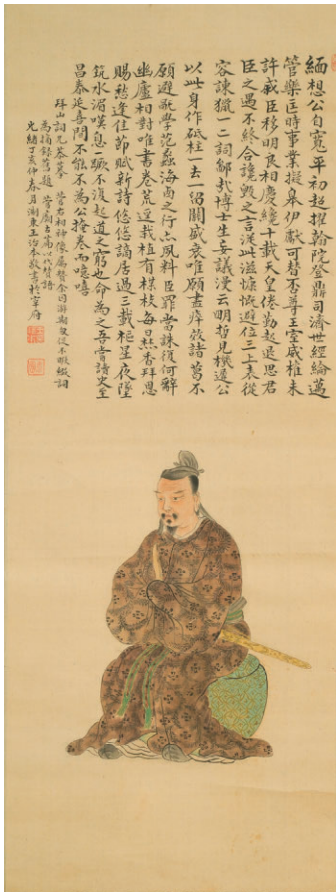 緬想公自寬平初超擢翰院登鼎司濟世經綸邁
管樂匡時事業擬皋伊獻可替否尊王室威權未
許戚臣移明良相慶纔十載天皇倦勤起退思君
臣之遇不終合讒毀之言從此滋慷慨避位三上表從
容諫獵一二詞鄙哉博士生妄議漫云明哲見機遲公
以此身作砥柱一去一留關盛衰唯願盡瘁效諸葛不
願避跡學范蠡海西之行亦夙料臣罪當誅復何辭
幽廬相對唯書卷荒逕栽植有梅枝每日焚香拜恩
賜愁逢佳節賦新詩悠悠謫居過三載樞星夜墜
筑水湄嘆息一蹶不復起道之窮也命為之吾嘗讀史至
昌泰延喜間不能不為公掩卷而噫嘻
拜山詞兄恭摹 菅右相神像屬贊余因游期促不暇綴詞
為摘錄舊題 菅廟古篇以代贊語
光緒丁亥仲春月浙東王治本敬書於宰府